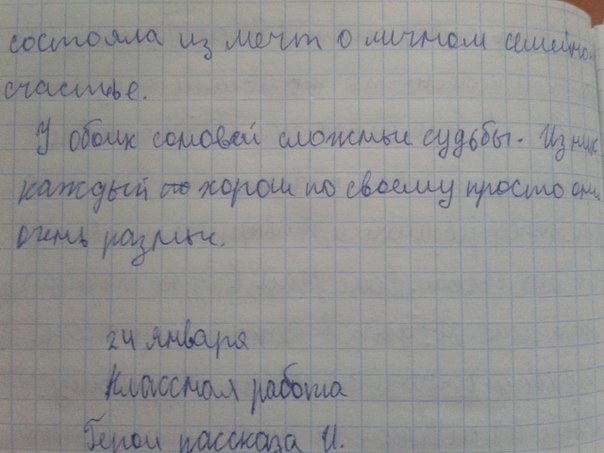 состояла из мечт о личном семейном
счастье.
У обоих сословей сложные судьбы. Из них
каждый по хорош по своему просто они
очень разные.
24 января
Классная работа
Герои рассказа И.